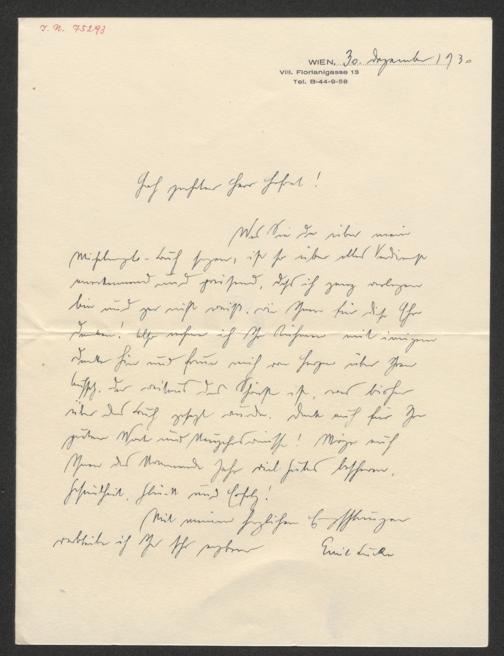 I. N. 75293
WIEN, 30. Dezember 1930
VIII. Florianigasse 13
Tel. B-44-9-58
Hoch geehrter Herr Hofrat!
Was Sie da über mein
Buch sagen, ist so über alles Verdienst
anerkennend und preisend, daß ich ganz verlegen
bin und gar nicht weiß, wie Ihnen für diese Ehre
danken! nehme ich Ihr mit innigem
Danke hin und freue mich von Herzen über Ihren
der weitaus das Schönste ist, was bisher
über das Buch gesagt wurde. Dank auch für Ihr
gutes Wort und Neujahrswünsche! Möge auch
Ihnen das kommende Jahr viel Gutes bescheren,
Gesundheit, Glück und Erfolg!
Mit meinen herzlichen Empfehlungen
verbleibe ich Ihr sehr ergebener
Emil Lucka